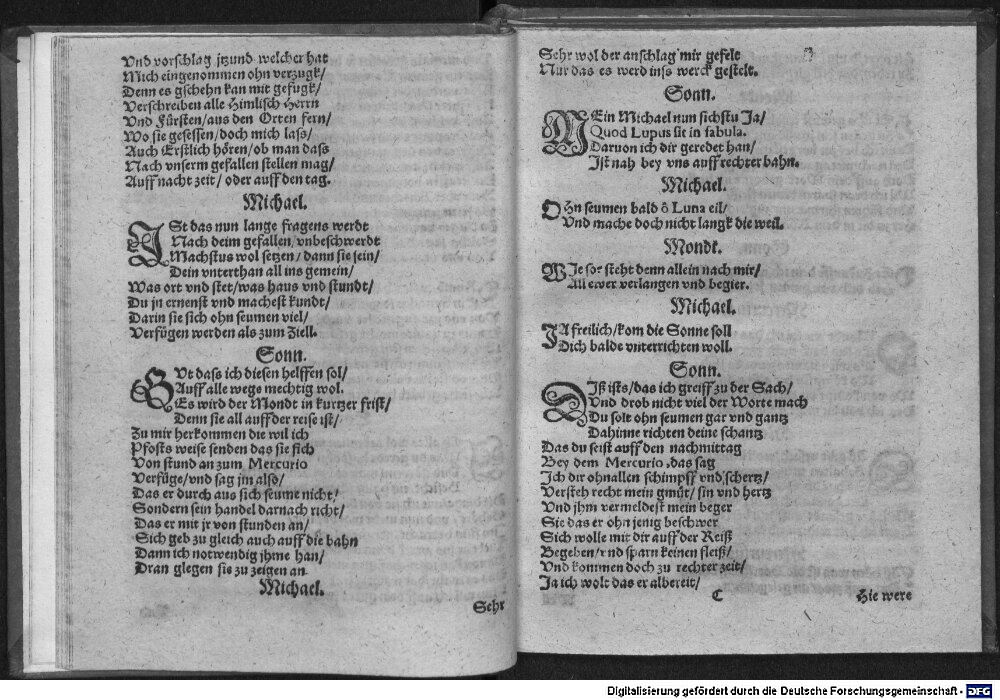 Vnd vorschlag jtzund welcher hat
Mich eingenommen ohn verzugk/
Denn es gschehn kan mit gefugk/
Verschreiben alle Himlisch Herrn
Vnd Fürsten/aus den Orten fern/
Wo sie gesessen/doch mich lass/
Auch Erstlich hören/ob man dass
Nach vnserm gefallen stellen mag/
Auff nacht zeit/oder auff den tag.
Michael.
ISt das nun lange fragens werdt
Nach deim gefallen/vnbeschwerdt
Machstus wol setzen/dann sie sein/
Dein vnterthan all ins gemein/
Was ort vnd stet/was haus vnd stundt/
Du jn ernenst vnd machest kundt/
Darin sie sich ohn seumen viel/
Verfügen werden als zum Ziell.
Sonn.
GVt dass ich diesen helffen sol/
Auff alle wegs mechtig wol.
Es wird der Mondt in kurtzer frist/
Denn sie all auff der reise ist/
Zu mir herkommen die wil ich
Pfosts weise senden das sie sich
Von stund an zum Mercurio
Verfüge/vnd sag jm also/
Das er durch aus sich seume nicht/
Sondern sein handel darnach richt/
Das er mit jr von stunden an/
Sich geb zu gleich auch auff die bahn
Dann ich notwendig jhme han/
Dran glegen sis zu zeigen an.
Michael.
Sehr
Sehr wol der anschlag mir gefelt
Nur das es werd inss werck gestelt.
Sonn.
MEin Michael nun sichstu Ja/
Quod Lupus sit in fabula.
Daruon ich dir geredet han/
Ist nah bey vns auff rechter bahn.
Michael.
OHn seumen bald ô Luna eil/
Vnd mache doch nicht langk die weil.
Mondt.
WIe so? steht denn allein nach mir/
All ewer verlangen vnd begier.
Michael.
JA freilich/kom die Sonne soll
Dich balde vnterrichten woll.
Sonn.
DIß ists/das ich greiff zu der Sach/
Vnd drob nicht viel der Worte mach
Du solt ohn seumen gar vnd gantz
Dahinne richten deine schantz
Das du seist auff den nachmittag
Bey dem Mercurio, das sag
Ich dir ohn allen schimpff vnd schertz/
Versteh recht mein gmüt/sin vnd hertz
Vnd jhm vermeldest mein beger
Sie das er ohn jenig beschwer
Sich wolle mit dir auff der Reiß
Begeben/vnd sparn keinen fleiß/
Vnd kommen doch zu rechter zeit/
Ja ich wolt das er albereit/
C Hie were
Digitalisierung gefördert durch die Deutsche Forschungsgemeinschaft - DFG